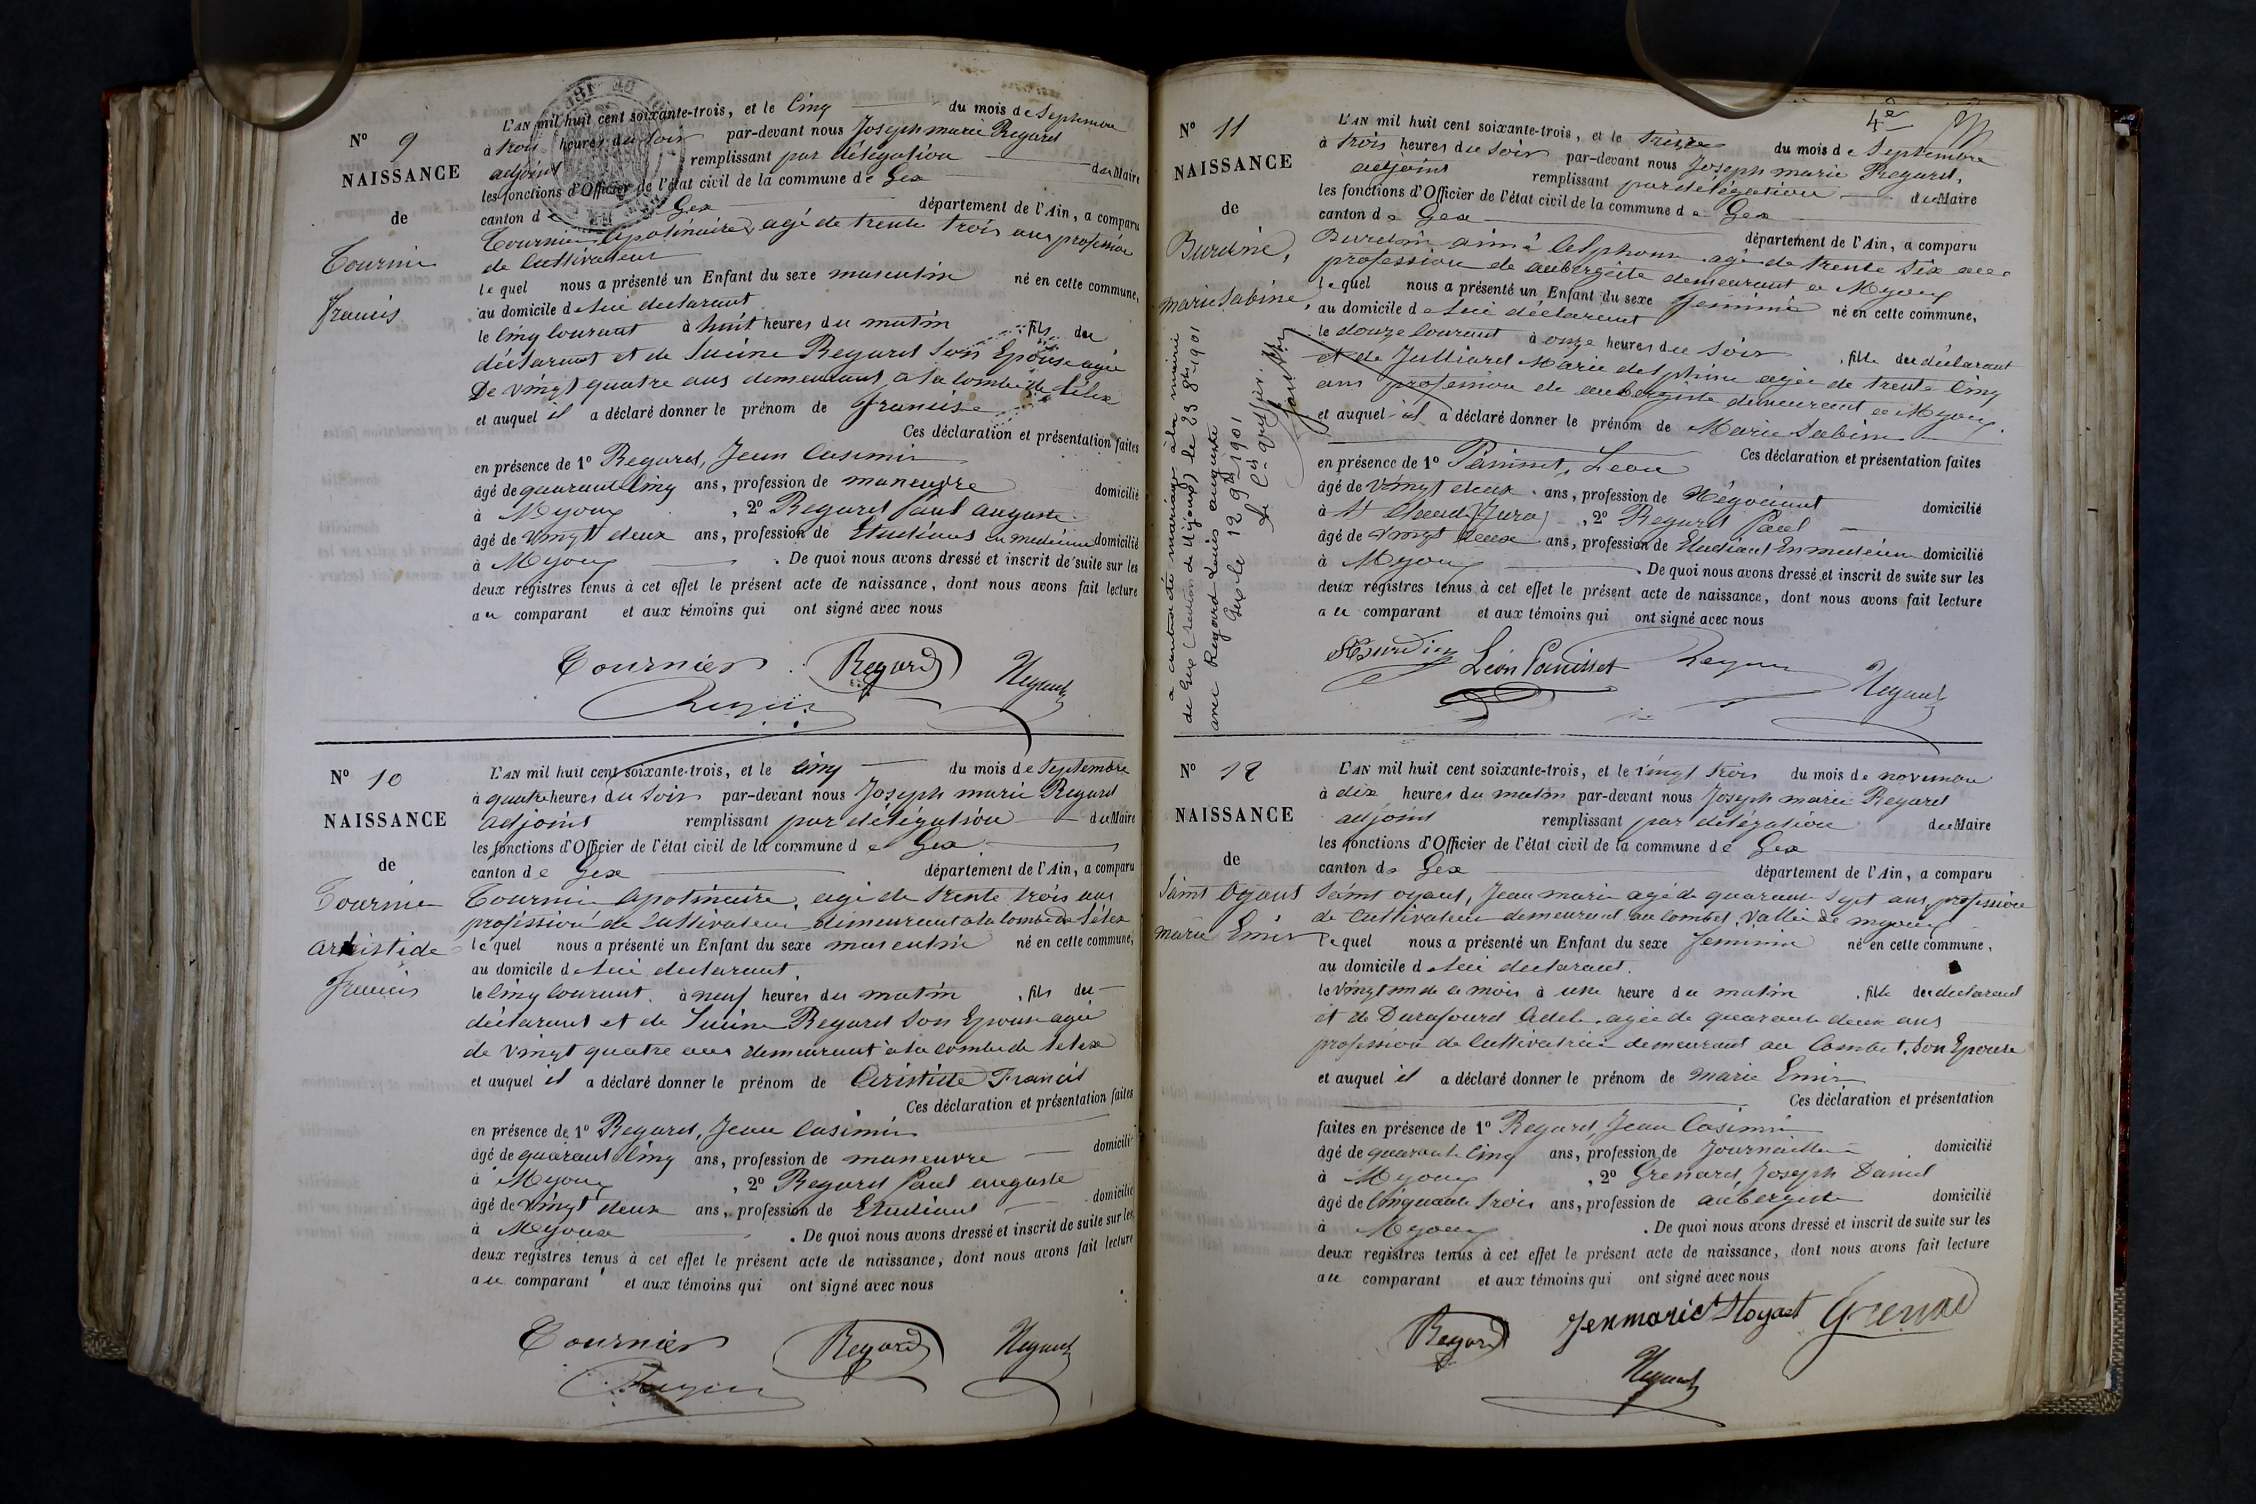 N° 9
NAISSANCE
de
Tournier
francis
L'AN mil huit cent soixante-trois, et le Cinq du mois de Septembre
à trois heures du Soir par-devant nous Joseph marie Regard
adjoint remplissant par délégation du Maire
les fonctions d'Officier de l'état civil de la commune de Gex
canton de Gex département de l'Ain, a comparu
Tournier, Apolinaire, agé de trente trois ans profession
de Cultivateur
lequel nous a présenté un Enfant du sexe masculin né en cette commune,
au domicile de lui déclarant
le Cinq Courant à huit heures du matin fils du
déclarant et de Regard Son Epouse agée
De vingt quatre ans demeurant a la combe de Lélex
et auquel il a déclaré donner le prénom de francis
Ces déclaration et présentation faites
en présence de 1° Regard, Jean Casimir
âgé de quarante Cinq ans, profession de maneuvre domicilié
à Myoux, 2° Regard Paul auguste
âgé de vingt deux ans, profession de Etudiant en medecine domicilié
à Myoux. De quoi nous avons dressé et inscrit de suite sur les
deux registres tenus à cet effet le présent acte de naissance, dont nous avons fait lecture
au comparant et aux témoins qui ont signé avec nous
Tournier Regard
N° 10
NAISSANCE
de
Tournier
aristide
francis
L'AN mil huit cent soixante-trois, et le Cinq du mois de Septembre
à quatre heures du Soir par-devant nous Joseph marie Regard
adjoint remplissant par délégation du Maire
les fonctions d'Officier de l'état civil de la commune de Gex
canton de Gex département de l'Ain, a comparu
Tournier Apolinaire, agé de trente trois ans
profession de Cultivateur demeurant a la combe de Lélex
lequel nous a présenté un Enfant du sexe masculin né en cette commune,
au domicile de lui declarant.
le Cinq Courant. à neuf heures du matin, fils du
déclarant et de Regard Son Epouse agée
de vingt quatre ans demeurant à la combe de Lelex
et auquel il a déclaré donner le prénom de Aristide Francis
Ces déclaration et présentation faites
en présence de 1° Regard, Jean Casimir
âgé de quarante Cinq ans, profession de maneuvre domicilié
à Myoux, 2° Regard Paul auguste
âgé de vingt deux ans, profession de Etudiant domicilié
à Myoux. De quoi nous avons dressé et inscrit de suite sur les
deux registres tenus à cet effet le présent acte de naissance, dont nous avons fait lecture
au comparant et aux témoins qui ont signé avec nous
Tournier Regard
4e
N° 11
NAISSANCE
de
Burdine,
marie Sabine,
a contracté mariage à la mairie
de Gex (section de Mijoux) le 23 8bre 1901
avec Regard Louis auguste
Gex le 12 9bre 1901
Le Cis Greffier.
L'AN mil huit cent soixante-trois, et le treize du mois de Septembre
à trois heures du Soir par-devant nous Joseph marie Regard,
adjoint remplissant par délégation du Maire
les fonctions d'Officier de l'état civil de la commune de Gex
canton de Gex département de l'Ain, a comparu
Burdin aimé Delphonse agé de trente Six ans
profession de aubergiste demeurant a Myoux
lequel nous a présenté un Enfant du sexe feminin né en cette commune,
au domicile de lui déclarant
le douze Courant à onze heures du Soir, fille du déclarant
et de Julliard Marie delphine agée de trente Cinq
ans profession de aubergiste demeurant a Myoux.
et auquel il a déclaré donner le prénom de Marie Sabine
Ces déclaration et présentation faites
en présence de 1° Panisset, Leon
âgé de vingt deux ans, profession de Négociant domicilié
à St Claude (Jura), 2° Regard Paul
âgé de vingt deux ans, profession de Etudiant En medecine domicilié
à Myoux. De quoi nous avons dressé et inscrit de suite sur les
deux registres tenus à cet effet le présent acte de naissance, dont nous avons fait lecture
au comparant et aux témoins qui ont signé avec nous
Burdin Léon Panisset
N° 12
NAISSANCE
de
Saint Oyant
marie Emir
L'AN mil huit cent soixante-trois, et le vingt trois du mois de novembre
à dix heures du matin par-devant nous Joseph marie Regard
adjoint remplissant par délégation du Maire
les fonctions d'Officier de l'état civil de la commune de Gex
canton de Gex département de l'Ain, a comparu
Saint oyant, Jean marie agé de quarante Sept ans, profession
de Cultivateur demeurant au combet, vallée de myoux
lequel nous a présenté un Enfant du sexe feminin né en cette commune,
au domicile de lui declarant.
le vingt un de ce mois à une heure du matin, fille du declarant
et de Durafourd Adele, agée de quarante deux ans
profession de Cultivatrice demeurant au Combet, Son Epouse
et auquel il a déclaré donner le prénom de marie Emir
Ces déclaration et présentation
faites en présence de 1° Regard, Jean Casimir
âgé de quarante Cinq ans, profession de Journaillier domicilié
à Myoux, 2° Grenard, Joseph Daniel
âgé de Cinquante trois ans, profession de aubergiste domicilié
à Myoux. De quoi nous avons dressé et inscrit de suite sur les
deux registres tenus à cet effet le présent acte de naissance, dont nous avons fait lecture
au comparant et aux témoins qui ont signé avec nous
Regard Grenard